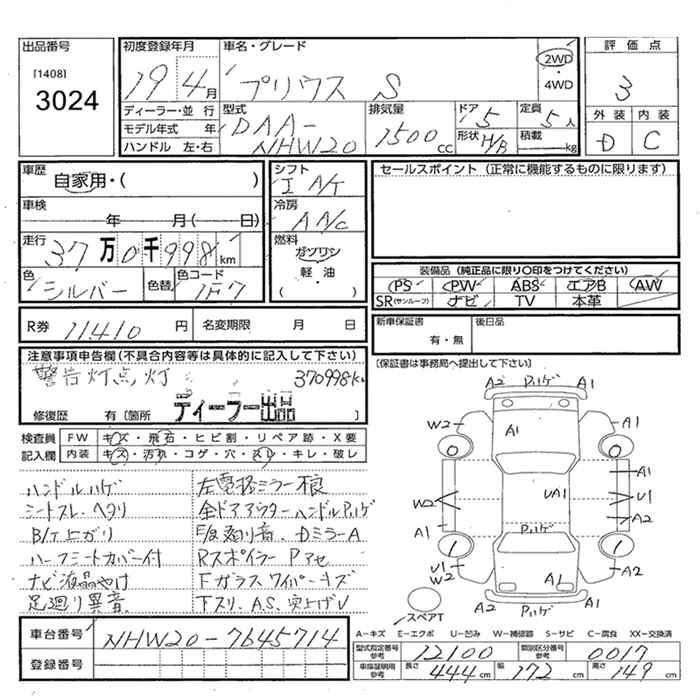 出品番号
[1408]
3024
初度登録年月
19 4月
車名・グレード
プリウス S
2WD
・
4WD
評価点
3
外装 内装
D C
ディーラー・並行
モデル年式 年
ハンドル 左・右
型式
DAA-
NHW20
排気量
1500cc
ドア
5
形状 H/B
定員
5人
積載
kg
車歴
自家用・( )
車検
年 月( 日)
走行
37万0千998km
色
シルバー
色替
色コード
1F7
シフト
I A/T
冷房
A A/C
燃料
ガソリン
軽・油
( )
セールスポイント (正常に機能するものに限ります)
装備品 (純正品に限り○印をつけてください)
PS PW ABS エアB AW
SR(サンルーフ) ナビ TV 本革
R券 11410円 名変期限 月 日
新車保証書
有・無
後日品
注意事項申告欄(不具合内容等は具体的に記入して下さい)
警告灯点灯 370998km
修復歴 有〔箇所 ディーラー出品 〕
〔保証書は事務局へ提出して下さい〕
検査員 FW キズ・飛石・ヒビ割・リペア跡・X要
記入欄 内装 キズ・汚れ・コゲ・穴・スレ・キレ・破レ
ハンドルハゲ
シートスレ・ヘタリ
B/T上ガリ
ハーフシートカバー付
ナビ液晶やけ
足廻り異音
左電格ミラー不良
全ドアアウターハンドルPハゲ
F/B廻り音、DミラーA
RスポイラーPアセ
Fガラスワイパーキズ
下スリ、A.S、突上ゲV
A2 Pハゲ A1
W2 A1 A1
A1
W2 UA1 U1
A2
A1 Pハゲ
U1
W2 A1 A2
A2 Pハゲ A1
スペアT
車台番号 NHW20-7645714
登録番号
A-キズ E-エクボ U-凹み W-補修跡 S-サビ C-腐食 XX-交換済
型式指定番号 参考 12100 類別区分番号 参考 0017
車庫証明用 参考 長さ 444cm 幅 172cm 高さ 149cm